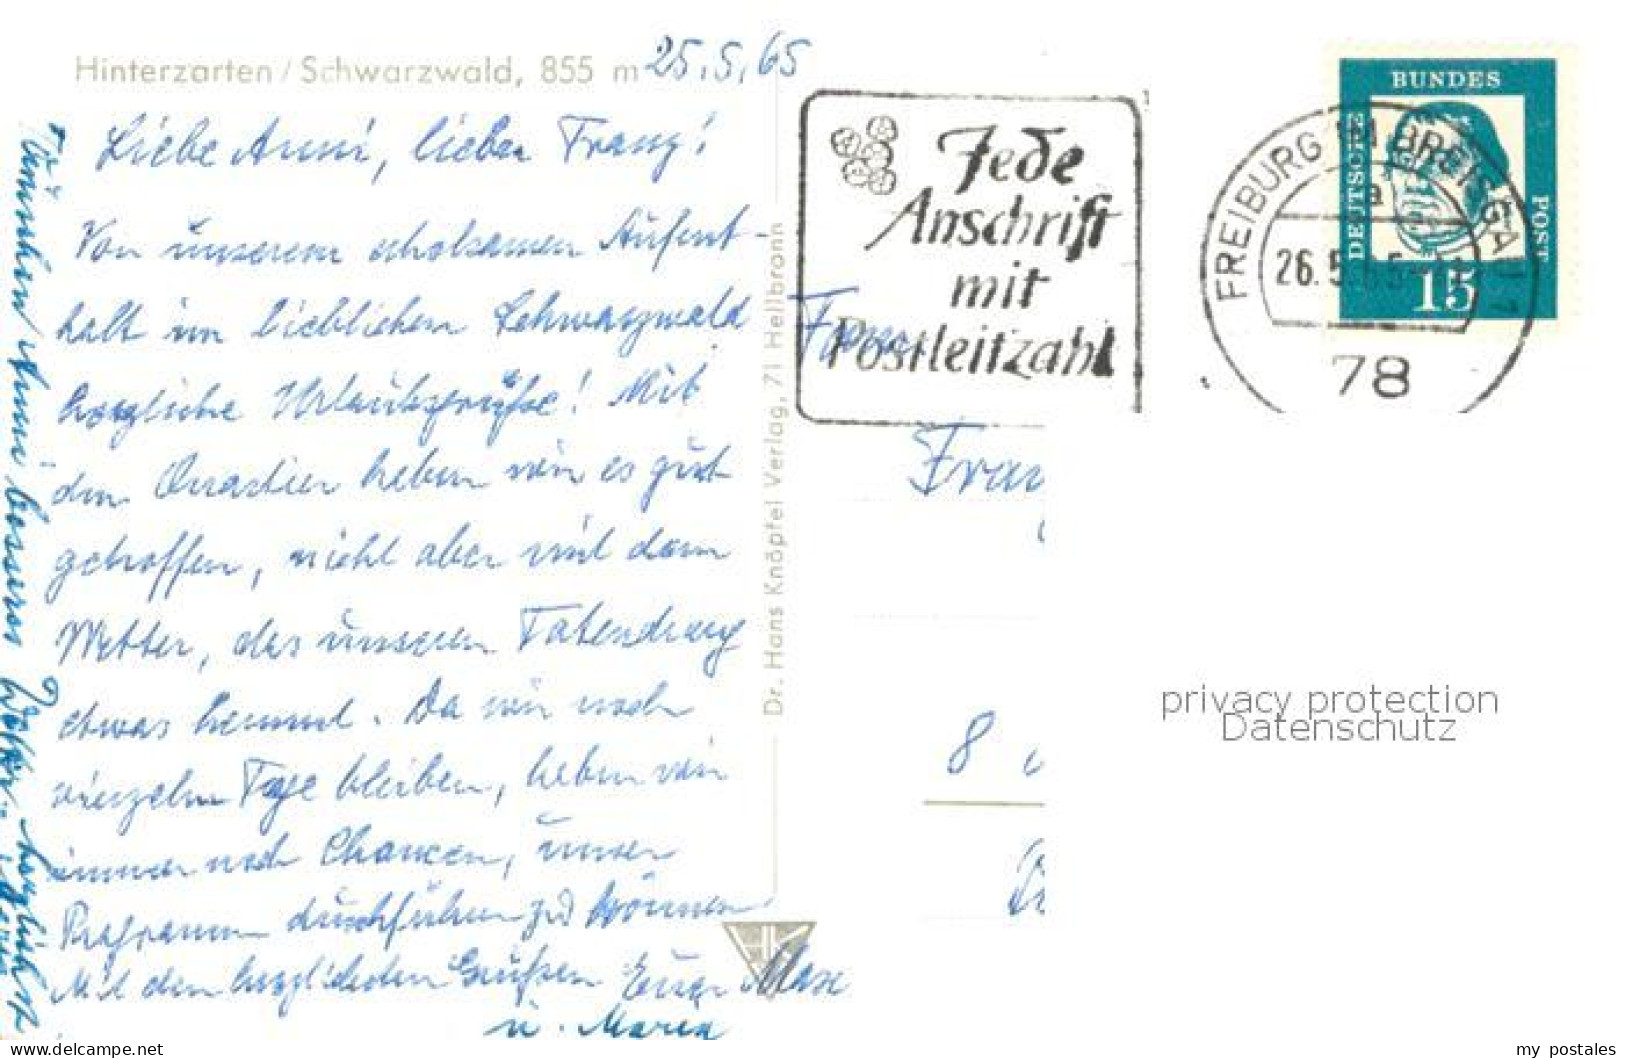 Hinterzarten / Schwarzwald, 855 m
25.5.65
Liebe Anni, lieber Franz!
Von unserem erholsamen Aufent-
halt im lieblichen Schwarzwald
herzliche Urlaubsgrüße! Mit
dem Quartier haben wir es gut
getroffen, nicht aber mit dem
Wetter, das unseren Tatendrang
etwas hemmt. Da wir noch
vierzehn Tage bleiben, haben wir
immer noch Chancen, unser
Programm durchführen zu können
Mit den herzlichsten Grüßen Euer Max
u. Maria
Dr. Hans Knöpfel Verlag, 71 Heilbronn
HK
Jede
Anschrift
mit
Postleitzahl
FREIBURG IM BREISGAU 1
a
26.5.65
78
BUNDES
DEUTSCHE
POST
15
Fam.
Fran
8
privacy protection
Datenschutz
delcampe.net
my_postales